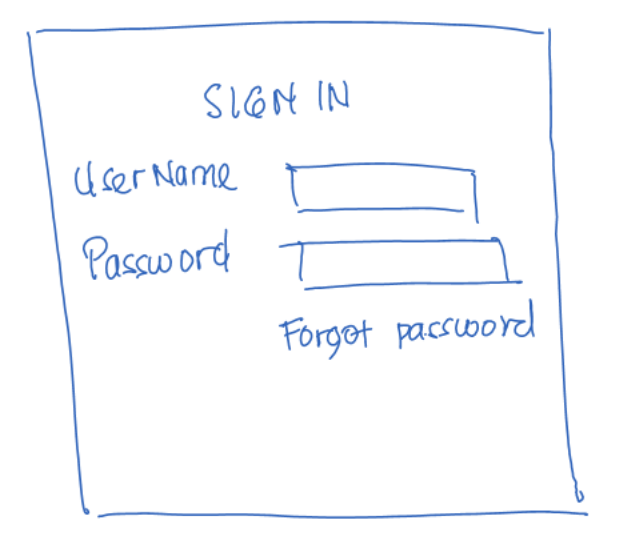 SIGN IN
UserName
Password
Forgot password